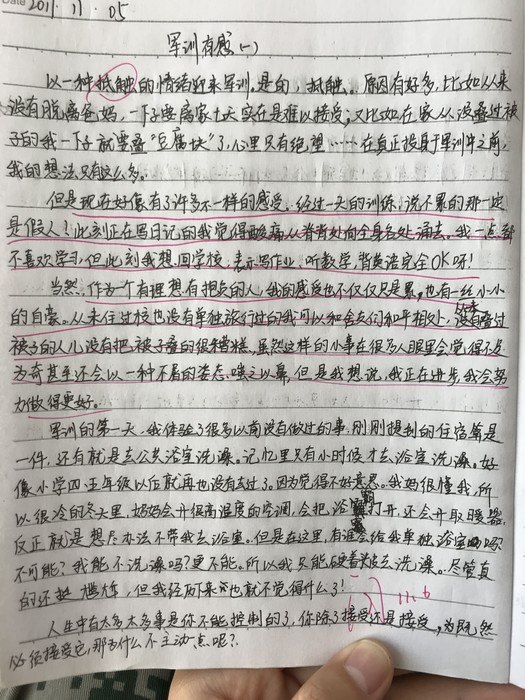 Date 2017. 11. 05
军训有感(一)
以一种抵触的情绪迎来军训。是的，抵触。原因有好多，比如从来
没有脱离爸妈，一下子要离家七天实在是难以接受；又比如在家从没叠过被
子的我一下子就要叠“豆腐块”了，心里只有绝望……在真正投身于军训中之前，
我的想法只有这么多。
但是现在好像有了许多不一样的感受。经过一天的训练，说不累的那一定
是假人！此刻正在写日记的我觉得酸痛从脊背处向全身各处涌去。我一点都
不喜欢学习，但此刻我想回学校，表示写作业、听数学、背英语完全OK呀！
当然，作为一个有理想有抱负的人，我的感受也不仅仅只是累，也有一丝小小
的自豪。从未住过校也没有单独旅行过的我可以和舍友们和平相处，从来没有叠过
被子的人儿没有把被子叠的很糟糕。虽然这样的小事在很多人眼里会觉得不足
为奇甚至还会以一种不屑的姿态，嗤之以鼻，但是我想说，我正在进步，我会努
力做得更好。
军训的第一天，我体验了很多以前没有做过的事，刚刚提到的住宿算是
一件，还有就是去公共浴室洗澡。记忆里只有小时候才去浴室洗澡。好
像小学四五年级以后就再也没有去过了，因为觉得不好意思。我妈很懂我，所
以很冷的冬天里，妈妈会开很高温度的空调，会把浴霸打开，还会开取暖器，
反正就是想尽办法不带我去浴室。但是在这里，有谁会给我单独浴室吗？
不可能？我能不洗澡吗？更不能。所以我只能硬着头皮去洗澡。尽管真
的还挺尴尬，但我经历来也就不觉得什么了！
人生中有太多太多事是你不能控制的了，你除了接受还是接受，为既然
必须接受它，那为什么不主动一点呢？
11.6